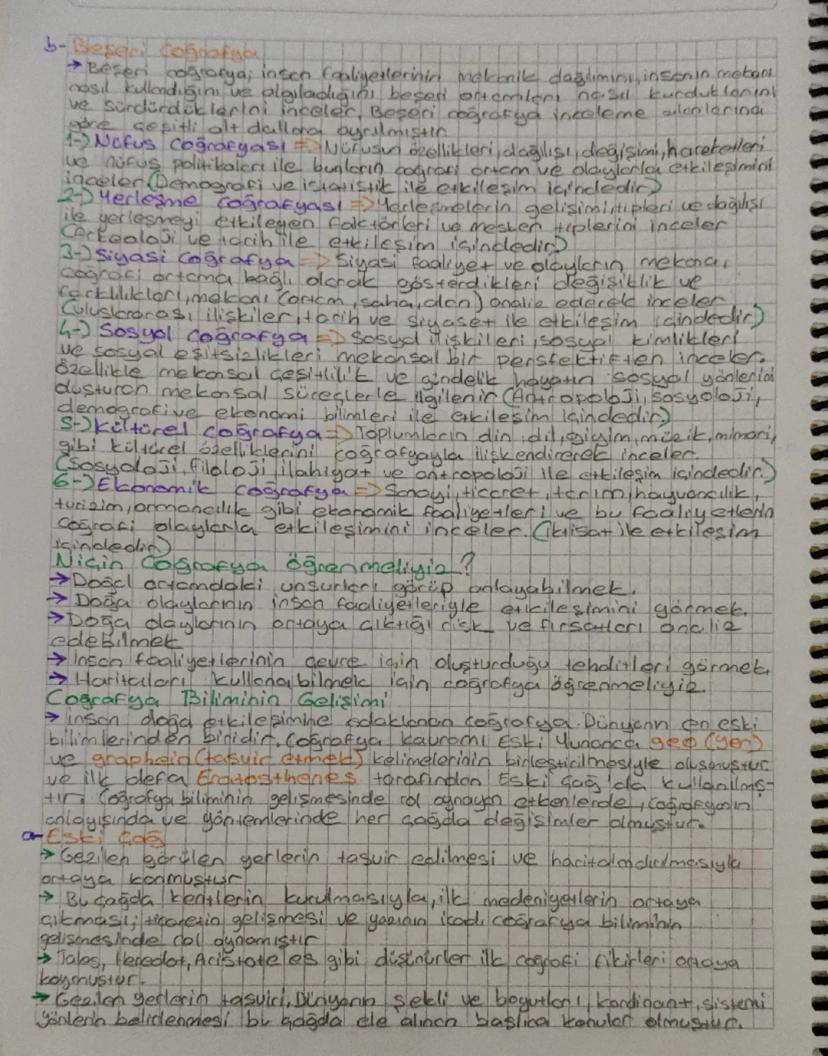 b- Beşeri Coğrafya
→ Beşeri coğrafya; insan faaliyetlerinin mekanik dağılımını, insanın mekanı
nasıl kullandığını ve algıladığını beşeri ortamları nasıl kurduklarını
ve sürdürdüklerini inceler, Beşeri coğrafya inceleme alanlarına
göre çeşitli alt dallara ayrılmıştır
1-) Nüfus Coğrafyası => Nüfusun özellikleri, dağılışı, değişimi, hareketleri
ve nüfus politikaları ile bunların coğrafi ortam ve olaylarla etkileşimini
inceler (Demografi ve istatistik ile etkileşim içindedir)
2-) Yerleşme Coğrafyası => Yerleşmelerin gelişimi, tipleri ve dağılışı
ile yerleşmeyi etkileyen faktörleri ve mesken tiplerini inceler
(Arkeoloji ve tarih ile etkileşim içindedir)
3-) Siyasi Coğrafya => Siyasi faaliyet ve olayların mekana,
coğrafi ortama bağlı olarak gösterdikleri değişiklik ve
farklılıkları, mekanı (ortam, saha, alan) analiz ederek inceler
(uluslararası ilişkiler, tarih ve siyaset ile etkileşim içindedir)
4-) Sosyal Coğrafya => Sosyal ilişkileri, sosyal kimlikleri
ve sosyal eşitsizlikleri mekansal bir perspektiften inceler.
Özellikle mekansal çeşitlilik ve gündelik hayatın sosyal yönlerini
oluşturan mekansal süreçlerle ilgilenir (Antropoloji, sosyoloji,
demografi ve ekonomi bilimleri ile etkileşim içindedir)
5-) Kültürel Coğrafya => Toplumların din, dil, giyim, müzik, mimari,
gibi kültürel özelliklerini coğrafyayla ilişkendirerek inceler.
(Sosyoloji, filoloji, ilahiyat ve antropoloji ile etkileşim içindedir.)
6-) Ekonomik Coğrafya => Sanayi, ticaret, tarım, hayvancılık,
turizim, ormancılık gibi ekonomik faaliyetleri ve bu faaliyetlerin
coğrafi olaylarla etkileşimini inceler. (iktisat ile etkileşim
içindedir)
Niçin Coğrafya Öğrenmeliyiz?
→ Doğal ortamdaki unsurları görüp anlayabilmek.
→ Doğa olaylarının insan faaliyetleriyle etkileşimini görmek.
→ Doğa olaylarının ortaya çıktığı risk ve fırsatları analiz
edebilmek
→ İnsan faaliyetlerinin çevre için oluşturduğu tehditleri görmek.
→ Haritaları kullanabilmek için coğrafya öğrenmeliyiz
Coğrafya Biliminin Gelişimi
→ İnsan doğa etkileşimine odaklanan coğrafya. Dünyanın en eski
bilimlerinden biridir. Coğrafya kavramı Eski Yunanca geo (yer)
ve graphein (tasvir etmek) kelimelerinin birleştirilmesiyle oluşmuştur
ve ilk defa Eratosthenes tarafından Eski Çağ'da kullanılmış-
tır. Coğrafya biliminin gelişmesinde rol oynayan etkenlerde, coğrafyanın
anlayışında ve yöntemlerinde her çağda değişimler olmuştur.
a- Eski Çağ
→ Gezilen görülen yerlerin tasvir edilmesi ve haritalandırılmasıyla
ortaya konmuştur
→ Bu çağda kentlerin kurulmasıyla, ilk medeniyetlerin ortaya
çıkması, ticaretin gelişmesi ve yazının icadı coğrafya biliminin
gelişmesinde rol oynamıştır
→ Tales, Heredot, Aristoteles gibi düşünürler ilk coğrafi fikirleri ortaya
koymuştur.
→ Gezilen yerlerin tasviri, Dünyanın şekli ve boyutları, kordinant, sistemi
yönlerin belirlenmesi bu çağda ele alınan başlıca konular olmuştur.